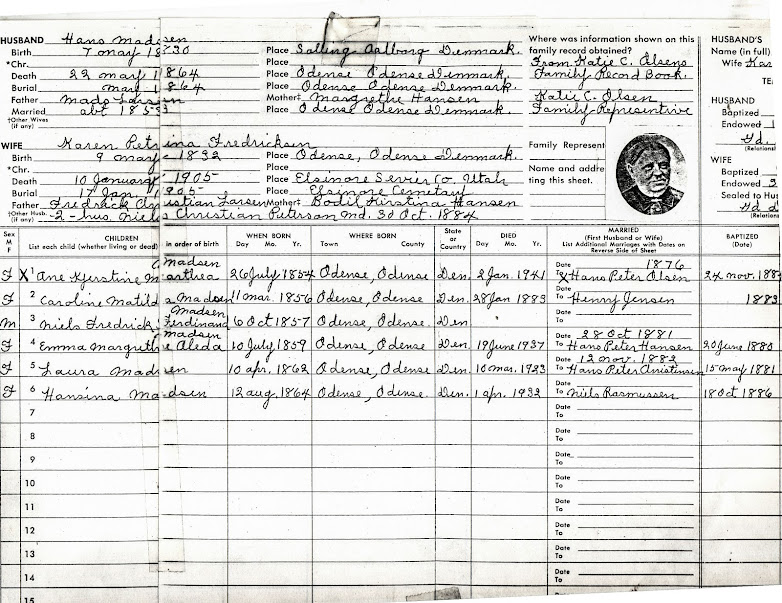 HUSBAND Hans Madsen
Birth 7 may 1830 Place Salling Aalborg Denmark.
*Chr. Place
Death 22 may 1864 Place Odense Odense Denmark.
Burial may 1864 Place Odense Odense Denmark.
Father Mads Larsen Mother‡ Margrethe Hansen
Married abt 1853 Place Odense Odense Denmark.
†Other Wives
(if any)
Where was information shown on this
family record obtained?
From Katie C. Olsens
Family Record Book.
Katie C. Olsen
Family Representive
HUSBAND'S
Name (in full)
Wife Kar
TE
HUSBAND
Baptized
Endowed 1
(Relations
WIFE Karen Petrina Fredricksen
Birth 9 may 1832 Place Odense, Odense Denmark.
*Chr. Place
Death 10 January 1905 Place Elsinore Sevier Co. Utah
Burial 17 Jan. 1905 Place Elsinore Cemetary
Father Fredrick Christian Larsen Mother‡ Bodil Kirstina Hansen
†Other Hus. (if any) -2- hus. niels Christian Peterson md. 30 Oct. 1884
Family Represent
Name and addre
ting this sheet.
WIFE
Baptized
Endowed 3
Sealed to Hus
(Relations
Sex M F
CHILDREN
List each child (whether living or dead) in order of birth
WHEN BORN
Day Mo. Yr.
WHERE BORN
Town County
State or Country
DIED
Day Mo. Yr.
MARRIED
(First Husband or Wife)
List Additional Marriages with Dates on
Reverse Side of Sheet
BAPTIZED
(Date)
F X 1 Ane Kjerstine Marthea Madsen 26 July 1854 Odense, Odense Den. 2 Jan. 1941 Date 1876 To X Hans Peter Olsen 24 nov. 188
F 2 Caroline Matilda Madsen 11 mar. 1856 Odense, Odense Den. 28 Jan 1883 Date To Henry Jensen 1883
m 3 niels Fredrick Ferdinand Madsen 6 Oct 1857 Odense, Odense. Den Date To
F 4 Emma Margrethe Aleda Madsen 10 July 1859 Odense, Odense Den. 19 June 1937 Date 28 Oct 1881 To Hans Peter Hansen 20 June 1880
F 5 Laura Madsen 10 apr. 1862 Odense, Odense Den. 10 mar. 1923 Date 12 nov. 1882 To Hans Peter Christinsen 15 may 1881
F 6 Hansina Madsen 12 aug. 1864 Odense, Odense. Den. 1 apr. 1932 Date To niels Rasmussen 18 Oct 1886
7 Date To
8 Date To
9 Date To
10 Date To
11 Date To
12 Date To
13 Date To
14 Date To
15 Date